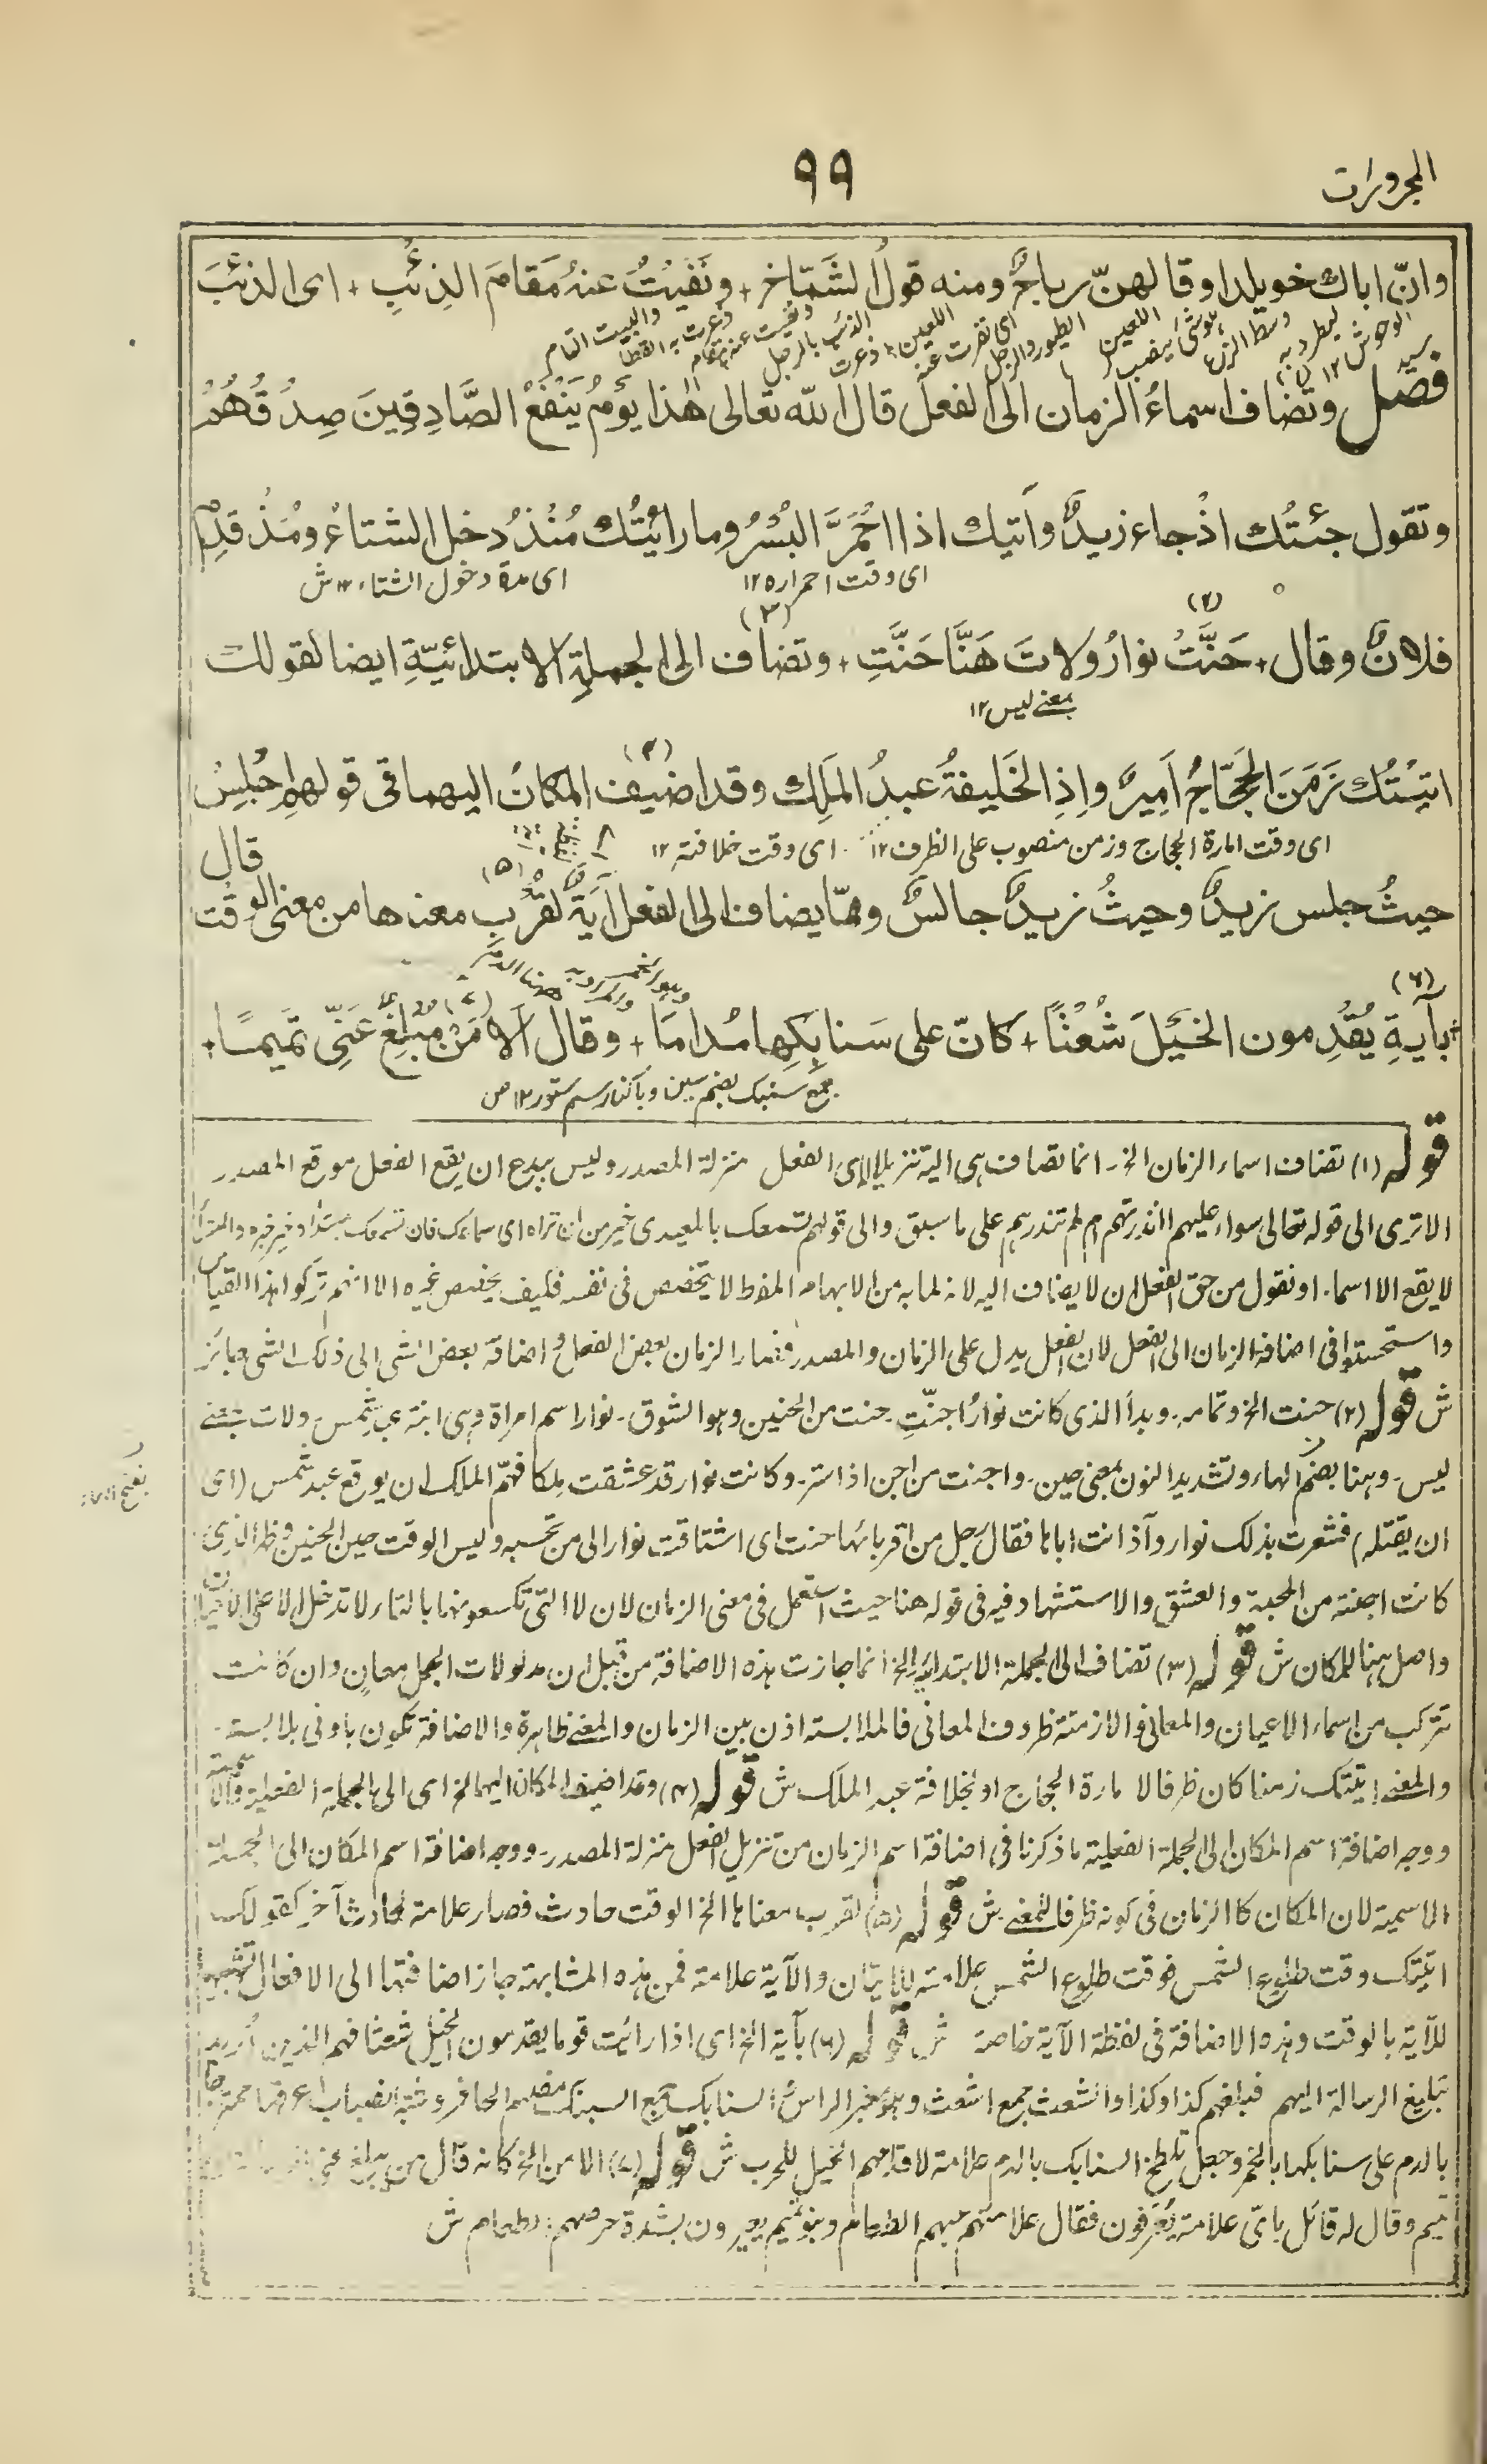 المجرورات
٩٩
وانّ اباك خويلدا وقالهنّ رباحٌ ومنه قول الشمّاخ ٭ ونَفَيْتُ عنهُ مَقامَ الذِئبِ ٭ اى الذئبَ
فصل وتضاف اسماءُ الزمان الى الفعل قال الله تعالى هٰذا يَوْمُ يَنْفَعُ الصَّادِقِينَ صِدْقُهُمْ
وتقول جئتُك اذْ جاء زيدٌ وآتيك اذا احْمَرَّ البُسْرُ وما رايْتُك مُنْذُ دخل الشتاءُ ومُذْ قَدِمَ
اى وقت احمراره ١٢
اى مدة دخول الشتاء ١٢ ش
فلانٌ وقال ٭ حَنَّتْ (٢) نوارُ ولاتَ هَنَّا حَنَّتِ ٭ (٣) وتضاف الى الجملةِ الابتدائيّةِ ايضا كقولك
بمعنے ليس ١٢
اتيتُك زَمَنَ الحَجّاجُ اَمِيرٌ واِذِ الخَليفةُ عبدُ المَلِك وقد اضيف (٤) المكانُ اليهما فى قولهم اجْلِسْ
اى وقت امارة الحجاج وزمن منصوب على الظرف ١٢ اى وقت خلافته ١٢
حيثُ جلس زيدٌ وحيثُ زيدٌ جالسٌ وممّا يضاف الى الفعل آيَةٌ لقُرْبِ (٥) معناها من معنى الوقت قال
بآيةِ (٦) يُقْدِمون الخَيْلَ شُعْثًا ٭ كانّ على سَنابِكِها مُدامَا ٭ وقال اَلا (٧) مَنْ مبْلِغٌ عَنِّى تَمِيمًا ٭
جمع سنبك بضم سين وباكنار سم ستور ١٢ ص
قوله (١) تضاف اسماء الزمان الخ۔ انما تضاف ہى اليه تنزيلا لاى الفعل منزلة المصدر وليس ببدع ان يقع الفعل موقع المصدر
الا ترى الى قوله تعالى سواء عليهم اانذرتهم ام لم تنذرهم على ما سبق والى قولهم تسمعك بالمعيدى خير من ان تراه اى سماعك فان تسمعك مبتدا وخير خبره والمبتدأ
لا يقع الا اسما۔ او نقول من حق الفعل ان لا يضاف اليه لانه لما به من الابهام المفرط لا يتخصص فى نفسه فكيف يخصص غيره الا انهم تركوا هذا القياس
واستحسنوا فى اضافة الزمان الى الفعل لان الفعل يدل على الزمان والمصدر فصار الزمان بعض الفعل واضافة بعض الشى الى ذلك الشى جائز
ش قوله (٢) حنت الخ وتمامه۔ وبدأ الذى كانت نوارُ اجنّتِ۔ حنت من الحنين وهو الشوق۔ نوار اسم امراة وہى ابنة عبد شمس۔ ولات بمعنے
ليس۔ وہنا بضم الهاء وتشديد النون بمعنى حين۔ واجنت من اجن اذا ستر۔ وكانت نوار قد عشقت ملكا فهمّ الملك ان يوقع عبد شمس (اى
ان يقتله) فشعرت بذلك نوار وآذنت اباها فقال رجل من اقربائها حنت اى اشتاقت نوار الى من تحبه وليس الوقت حين الحنين وظهر الذى
كانت اجنته من المحبة والعشق والاستشهاد فيه فى قوله هنا حيث استعمل فى معنى الزمان لان لا التى تكسعونها بالتاء لا تدخل الا على الاحيان
واصل ہنا للمكان ش قوله (٣) تضاف الى الجملة الابتدائية الخ انما جازت ہذه الاضافة من قبل ان مدلولات الجمل معانٍ وان كانت
تتركب من اسماء الاعيان والمعانى والازمنة ظروف المعانى فالملابسة اذن بين الزمان والمعنے ظاہرة والاضافة تكون بادنى ملابسة۔
والمعنے اتيتك زمنا كان ظرفا لامارة الحجاج او لخلافة عبد الملك ش قوله (٤) وقد اضيف المكان اليهما الخ اى الى الجملة الفعلية والاسمية
ووجه اضافة اسم المكان الى الجملة الفعلية ما ذكرنا فى اضافة اسم الزمان من تنزيل الفعل منزلة المصدر۔ ووجه اضافة اسم المكان الى الجملة
الاسمية لان المكان كالزمان فى كونه ظرفا للمعنے ش قوله (٥) لقرب معناها الخ الوقت حادث فصار علامة لحادث آخر كقولك
اتيتك وقت طلوع الشمس فوقت طلوع الشمس علامة للاتيان والآية علامة فمن ہذه المشابهة جاز اضافتها الى الافعال تشبيها
للآية بالوقت وہذه الاضافة فى لفظة الآية خاصة ش قوله (٦) بآية الخ اى اذا رائيت قوما يقدمون الخيل شعثا فهم الذين اريد
تبليغ الرسالة اليهم فبلغهم كذا وكذا والشعث جمع اشعث وهو مغبر الراس والسنابك جمع السنبك مقدم الحافر
بالدم على سنابكها بالخمر وجعل تلطخ السنابك بالدم علامة لاقدامهم الخيل للحرب ش قوله (٧) الا من الخ كانه قال من يبلغ عنى
تميم وقال له قائل باىّ علامة يُعرَفون فقال علامتهم حبهم الطعام وبنو تميم يعيرون بشدة حرصهم للطعام ش